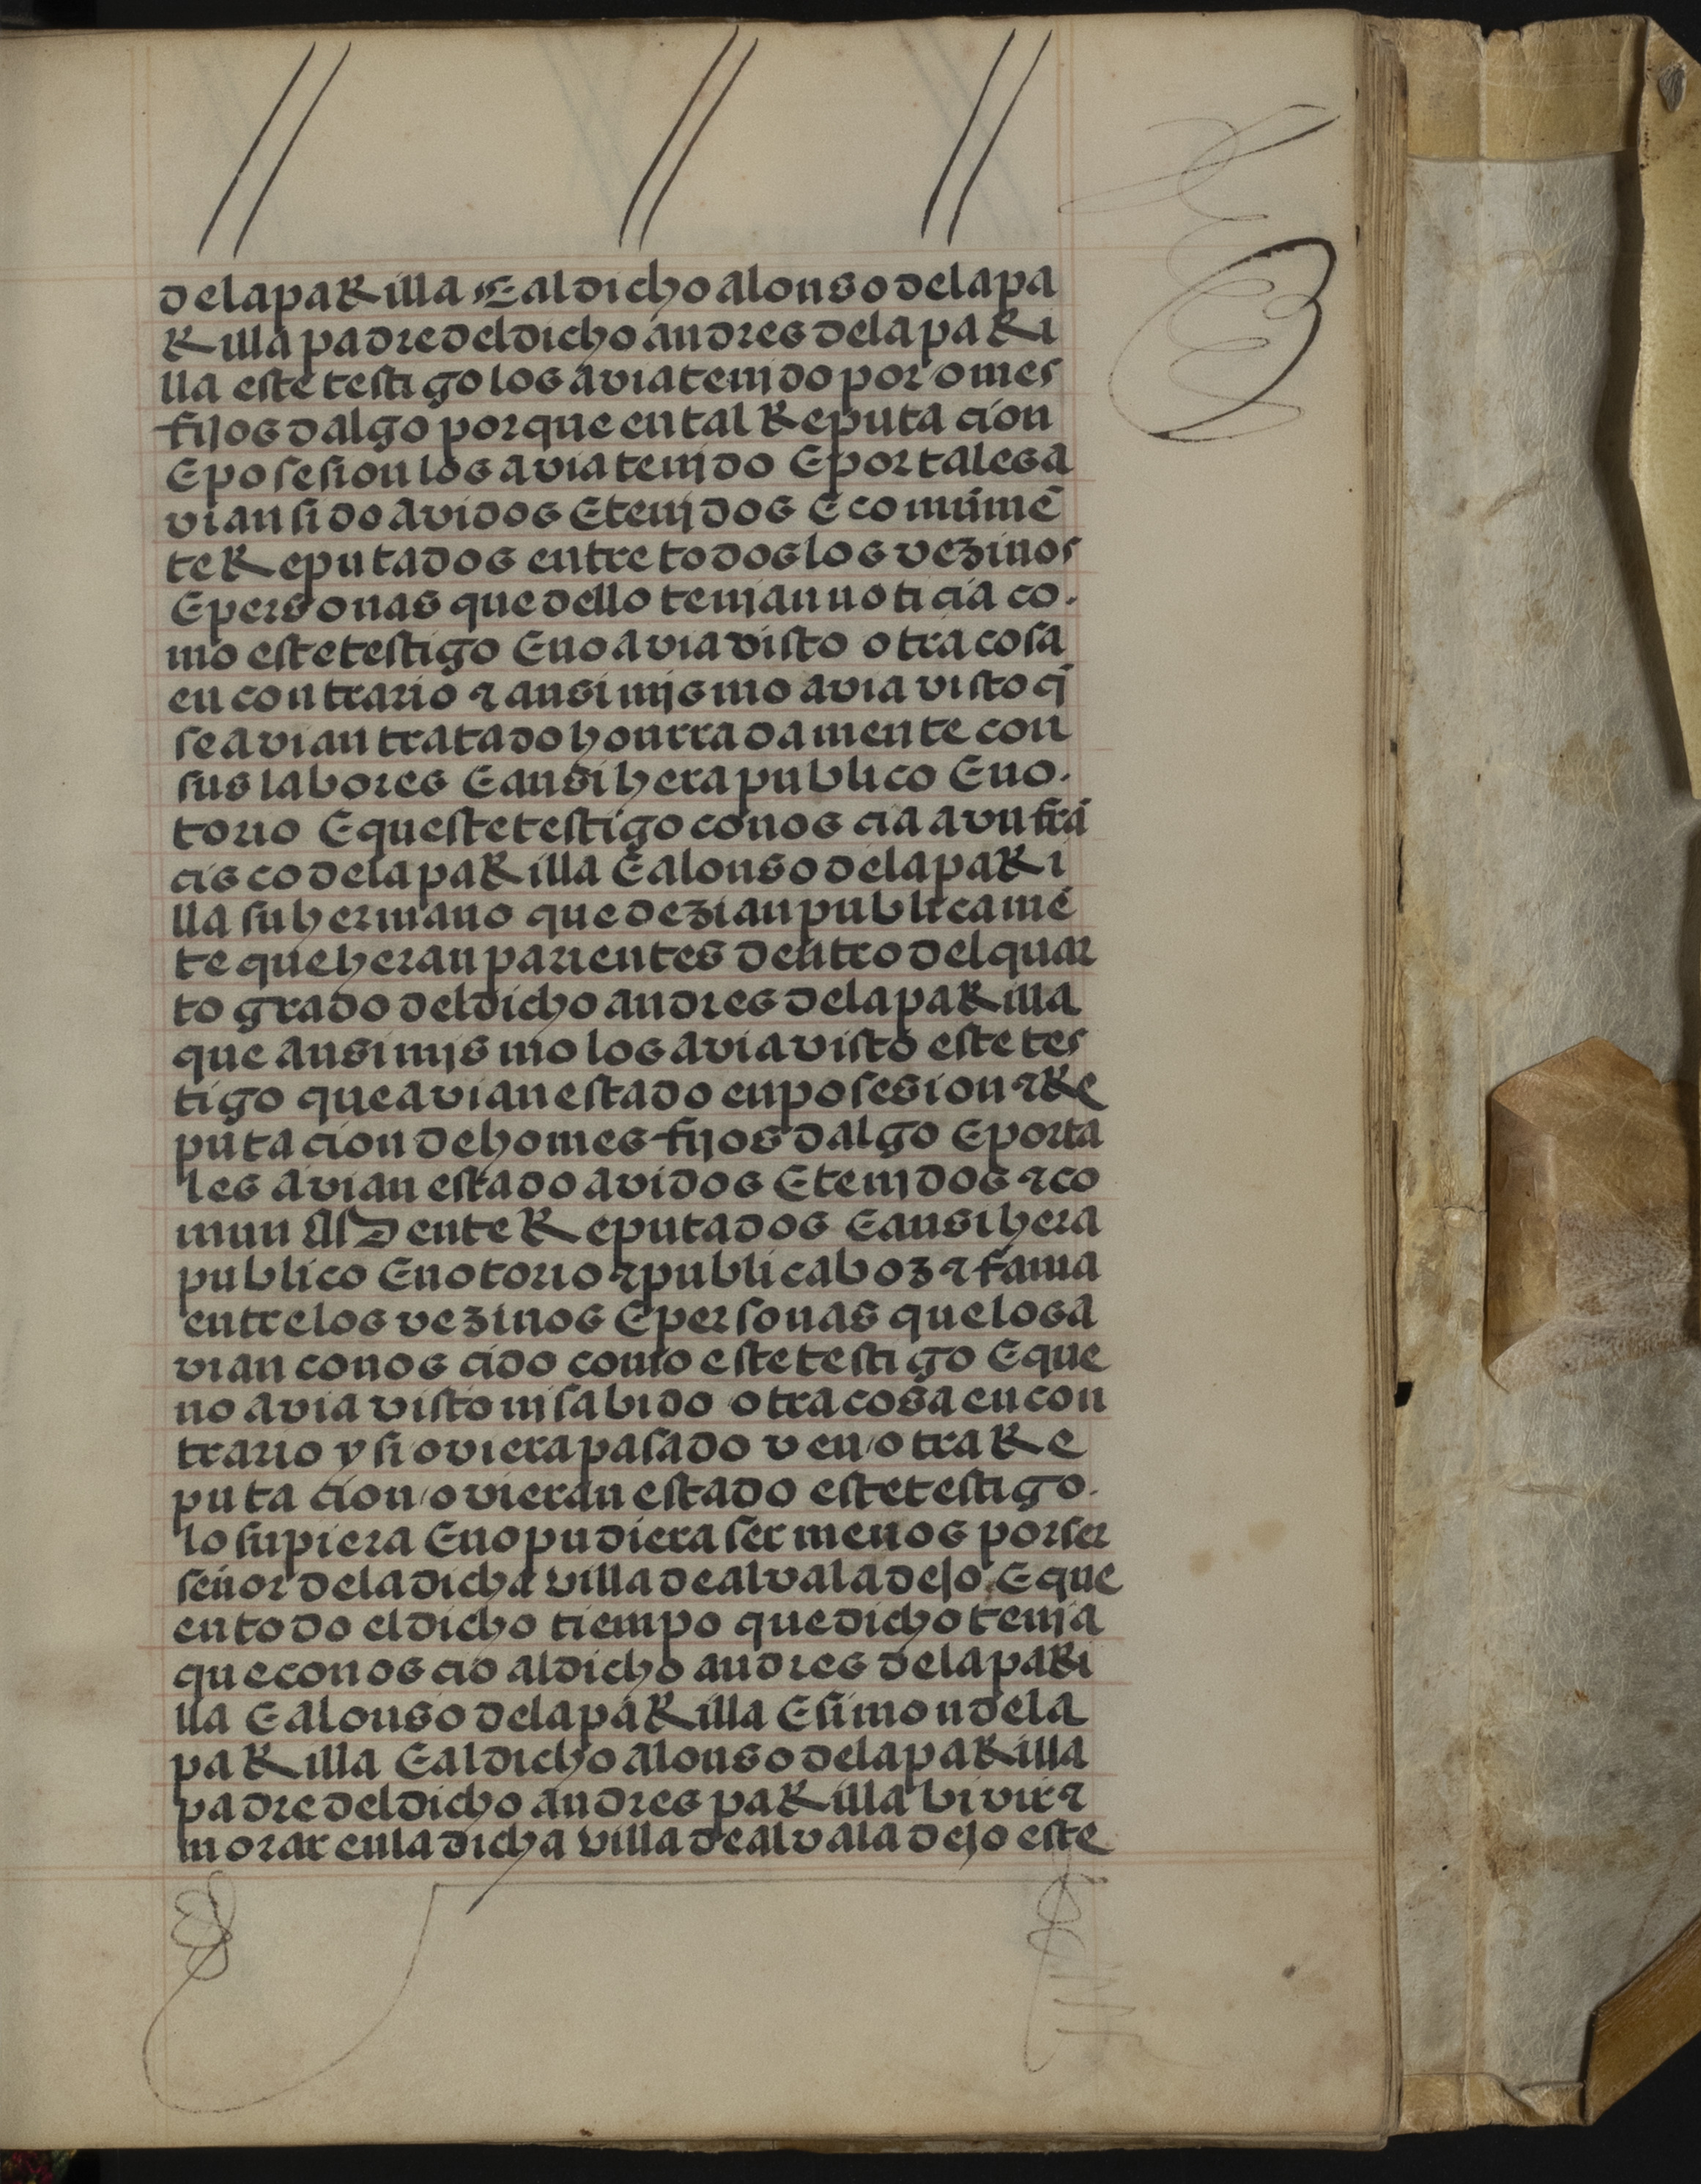 de la paRilla, E al dicho alonso de la pa
Rilla padre del dicho andres de la paRi
lla este testigo los avia tenjdo por omes
fijos dalgo porque en tal Reputacion
E posesion los avia tenjdo E por tales a
vian sido avidos E tenjdos E comũmẽ
te Reputados entre todos los vezinos
E personas que dello tenjan noticia co.
mo este testigo E no avia visto otra cosa
en contrario ⁊ ansi mjsmo avia visto q̃
se avian tratado honrradamente con
sus labores E ansi hera publico E no.
torio E queste testigo conoscia a vn frã
cisco de la paRilla E alonso de la paRi
lla su hermano que dezian publicamẽ
te que heran parientes dentro del quar
to grado del dicho andres de la paRilla
que ansi mjsmo los avia visto este tes
tigo que avian estado en posesion ⁊ Re
putacion de homes fijos dalgo E por ta
les avian estado avidos E tenjdos ⁊ co
mun mente Reputados E ansi hera
publico E notorio ⁊ publica boz ⁊ fama
entre los vezinos E personas que los a
vian conoscido como este testigo E que
no avia visto nj sabido otra cosa en con
trario y si oviera pasado v en/otra Re
putacion/ovieran estado este testigo.
lo supiera E no pudiera ser menos por ser
señor de la dicha villa de alvaladejo E que
en todo el dicho tiempo que dicho tenja
que conoscio al dicho andres de la paRi
lla E alonso de la paRilla E simon de la
paRilla E al dicho alonso de la paRilla
padre del dicho andres paRilla bivir ⁊
morar en la dicha villa de alvaladejo este